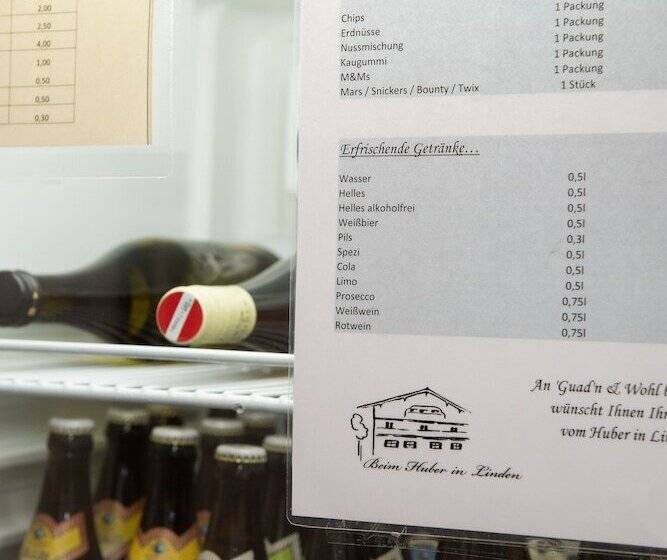 2,00
2,50
4,00
1,00
0,50
0,50
0,30
Chips 1 Packung
Erdnüsse 1 Packung
Nussmischung 1 Packung
Kaugummi 1 Packung
M&Ms 1 Packung
Mars / Snickers / Bounty / Twix 1 Stück
Erfrischende Getränke...
Wasser 0,5l
Helles 0,5l
Helles alkoholfrei 0,5l
Weißbier 0,5l
Pils 0,3l
Spezi 0,5l
Cola 0,5l
Limo 0,5l
Prosecco 0,75l
Weißwein 0,75l
Rotwein 0,75l
An 'Guad'n & Wohl
wünscht Ihnen
vom Huber in
Beim Huber in Linden